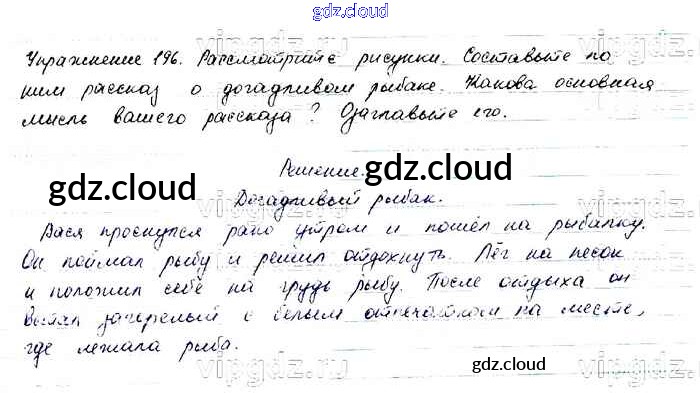 gdz.cloud
Упражнение 196. Рассмотрите рисунки. Составьте по
ним рассказ о догадливом рыбаке. Какова основная
мысль вашего рассказа? Озаглавьте его.
Решение.
gdz.cloud
gdz.cloud
Догадливый рыбак.
Вася проснулся рано утром и пошёл на рыбалку.
Он поймал рыбу и решил отдохнуть. Лёг на песок
и положил себе на грудь рыбу. После отдыха он
встал загорелый с белым отпечатком на месте,
где лежала рыба.
gdz.cloud
vipgdz.ru